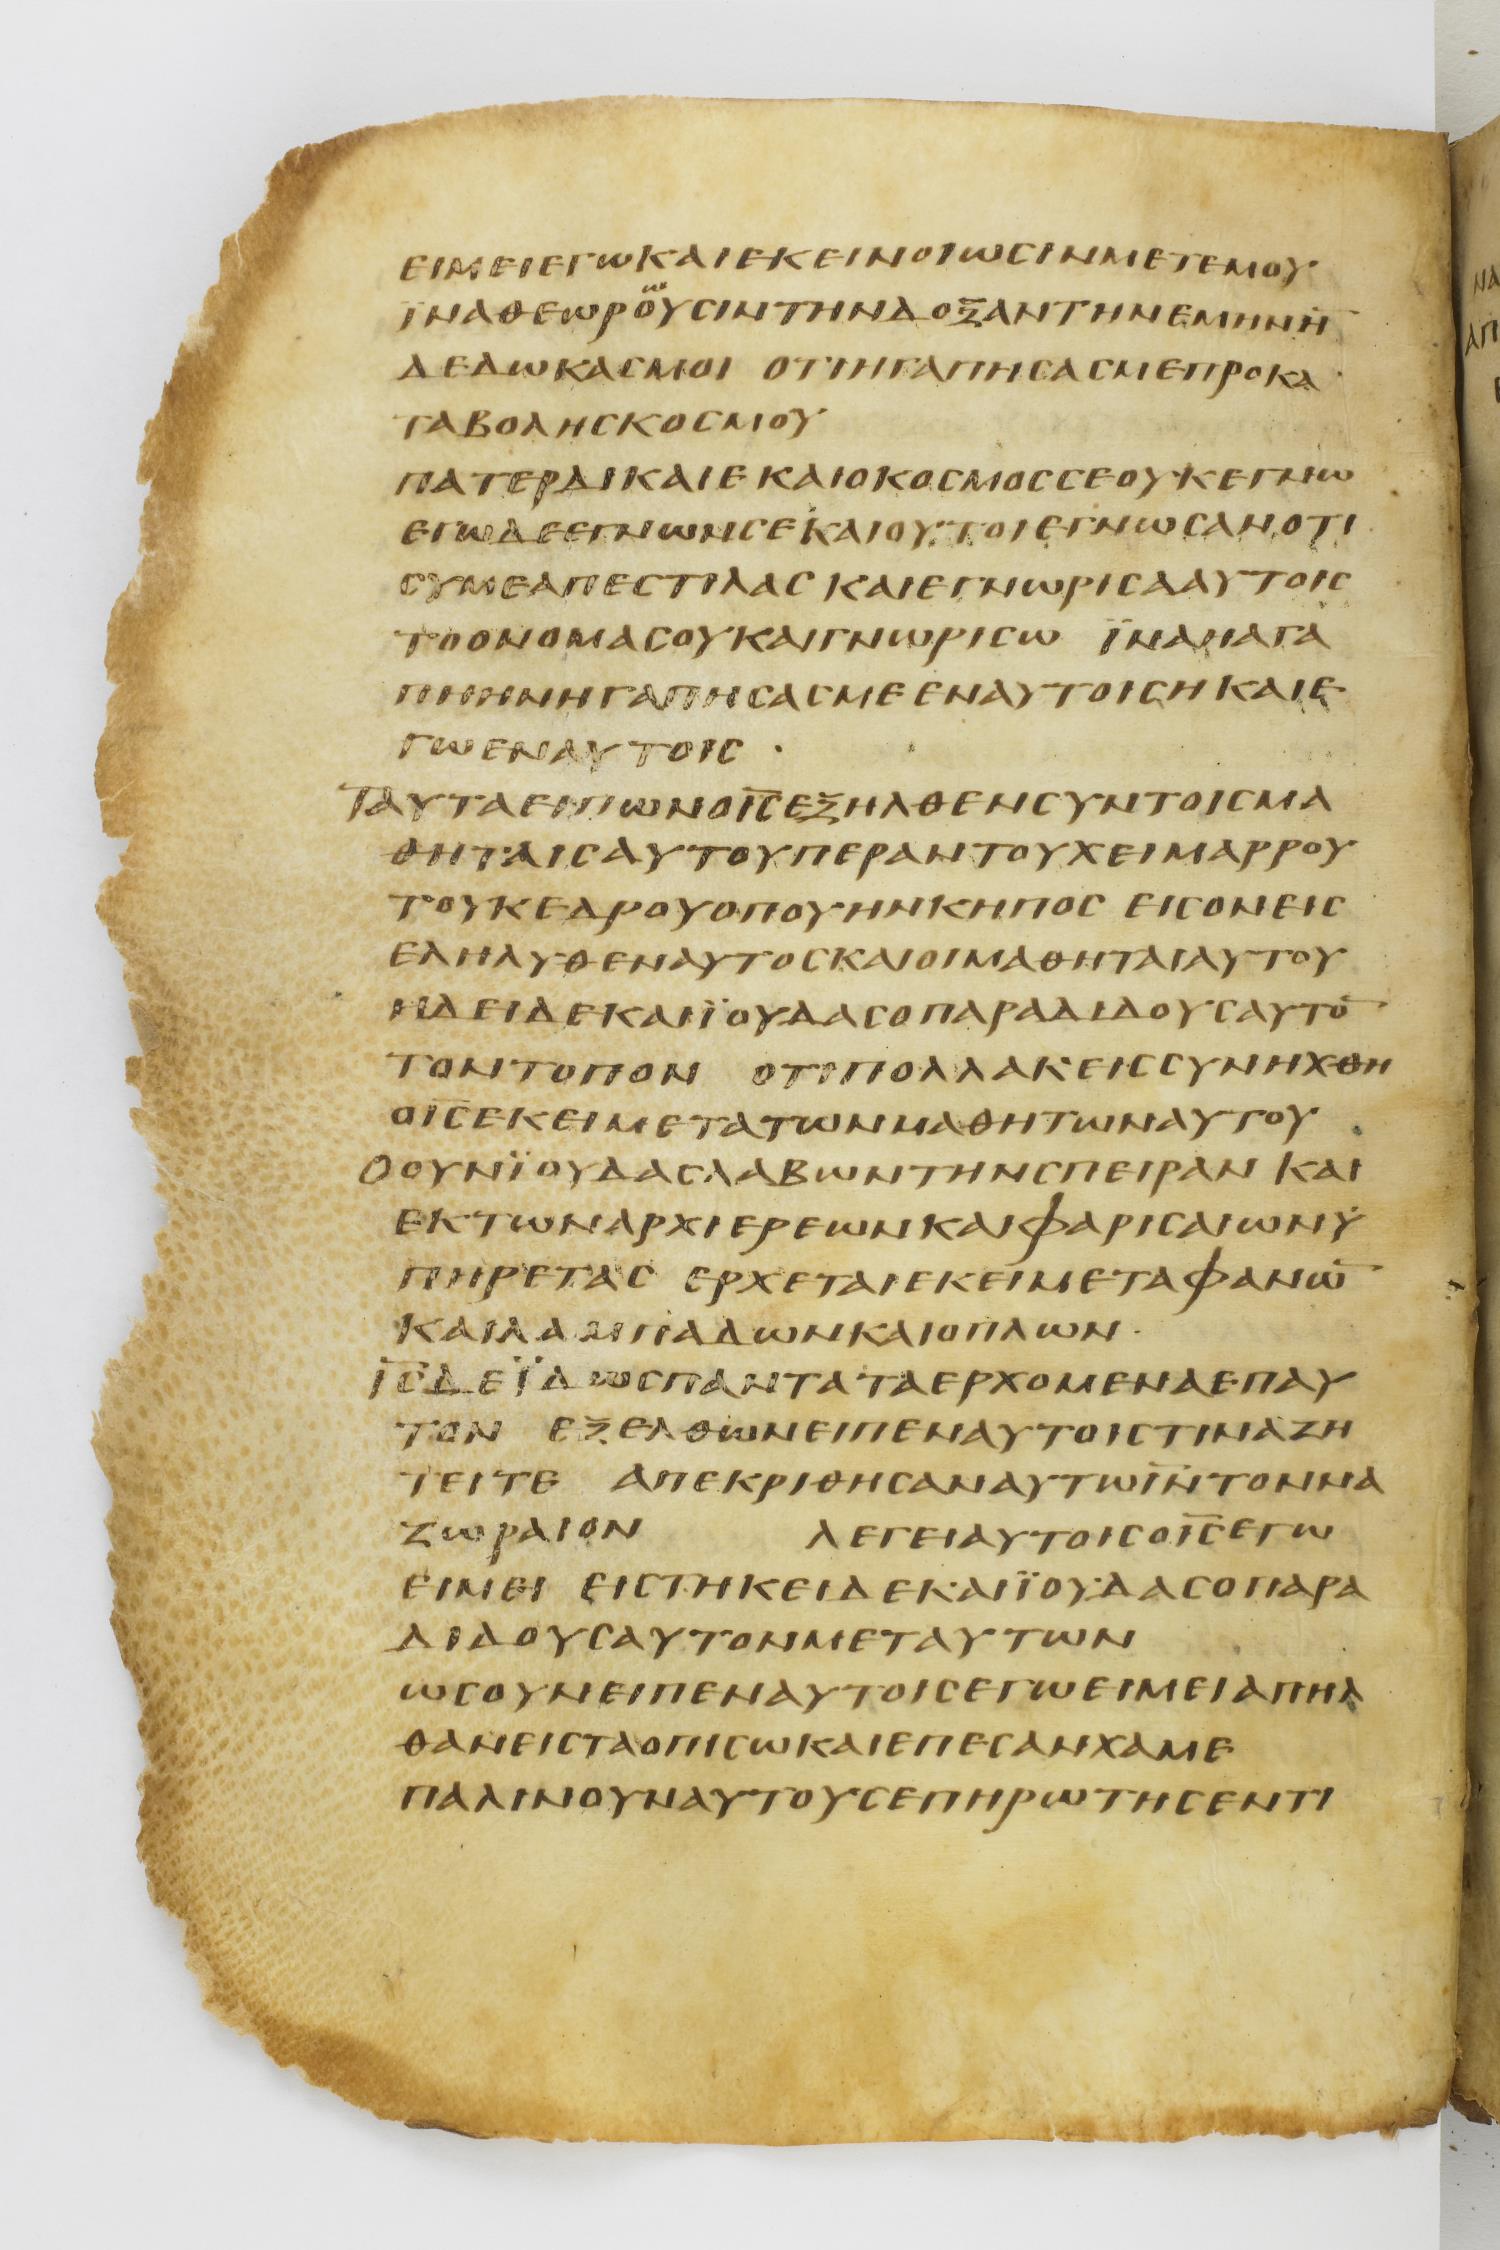 ΕΙΜΕΙΕΓωΚΑΙΕΚΕΙΝΟΙωϹΙΝΜΕΤΕΜΟΥ
ΪΝΑΘΕωΡΟΥϹΙΝΤΗΝΔΟΞΑΝΤΗΝΕΜΗΝΗ̅
ΔΕΔωΚΑϹΜΟΙ ΟΤΙΗΓΑΠΗϹΑϹΜΕΠΡΟΚΑ
ΤΑΒΟΛΗϹΚΟϹΜΟΥ
ΠΑΤΕΡΔΙΚΑΙΕΚΑΙΟΚΟϹΜΟϹϹΕΟΥΚΕΓΝω
ΕΓωΔΕΕΓΝωΝϹΕΚΑΙΟΥΤΟΙΕΓΝωϹΑΝΟΤΙ
ϹΥΜΕΑΠΕϹΤΙΛΑϹ ΚΑΙΕΓΝωΡΙϹΑΑΥΤΟΙϹ
ΤΟΟΝΟΜΑϹΟΥΚΑΙΓΝωΡΙϹω ΪΝΑΗΑΓΑ
ΠΗΗΝΗΓΑΠΗϹΑϹΜΕΕΝΑΥΤΟΙϹΗΚΑΙΕ
ΓωΕΝΑΥΤΟΙϹ ·
ΤΑΥΤΑΕΙΠωΝΟΙ̅Ϲ̅ΕΞΗΛΘΕΝϹΥΝΤΟΙϹΜΑ
ΘΗΤΑΙϹΑΥΤΟΥΠΕΡΑΝΤΟΥΧΕΙΜΑΡΡΟΥ
ΤΟΥΚΕΔΡΟΥΟΠΟΥΗΝΚΗΠΟϹ ΕΙϹΟΝΕΙϹ
ΕΛΗΛΥΘΕΝΑΥΤΟϹΚΑΙΟΙΜΑΘΗΤΑΙΑΥΤΟΥ
ΗΔΕΙΔΕΚΑΙΪΟΥΔΑϹΟΠΑΡΑΔΙΔΟΥϹΑΥΤΟ̅
ΤΟΝΤΟΠΟΝ ΟΤΙΠΟΛΛΑΚΕΙϹϹΥΝΗΧΘΗ
ΟΙ̅Ϲ̅ΕΚΕΙΜΕΤΑΤωΝΜΑΘΗΤωΝΑΥΤΟΥ
ΟΟΥΝΪΟΥΔΑϹΛΑΒωΝΤΗΝϹΠΕΙΡΑΝ ΚΑΙ
ΕΚΤωΝΑΡΧΙΕΡΕωΝΚΑΙΦΑΡΙϹΑΙωΝΥ
ΠΗΡΕΤΑϹ ΕΡΧΕΤΑΙΕΚΕΙΜΕΤΑΦΑΝω̅
ΚΑΙΛΑΜΠΑΔωΝΚΑΙΟΠΛωΝ·
Ι̅Ϲ̅ΔΕΪΔωϹΠΑΝΤΑΤΑΕΡΧΟΜΕΝΑΕΠΑΥ
ΤΟΝ ΕΞΕΛΘωΝΕΙΠΕΝΑΥΤΟΙϹΤΙΝΑΖΗ
ΤΕΙΤΕ ΑΠΕΚΡΙΘΗϹΑΝΑΥΤωΙ̅Ν̅ΤΟΝΝΑ
ΖωΡΑΙΟΝ ΛΕΓΕΙΑΥΤΟΙϹΟΙ̅Ϲ̅ΕΓω
ΕΙΜΕΙ ΕΙϹΤΗΚΕΙΔΕΚΑΙΪΟΥΔΑϹΟΠΑΡΑ
ΔΙΔΟΥϹΑΥΤΟΝΜΕΤΑΥΤωΝ
ωϹΟΥΝΕΙΠΕΝΑΥΤΟΙϹΕΓωΕΙΜΕΙΑΠΗΛ
ΘΑΝΕΙϹΤΑΟΠΙϹωΚΑΙΕΠΕϹΑΝΧΑΜΕ
ΠΑΛΙΝΟΥΝΑΥΤΟΥϹΕΠΗΡωΤΗϹΕΝΤΙ